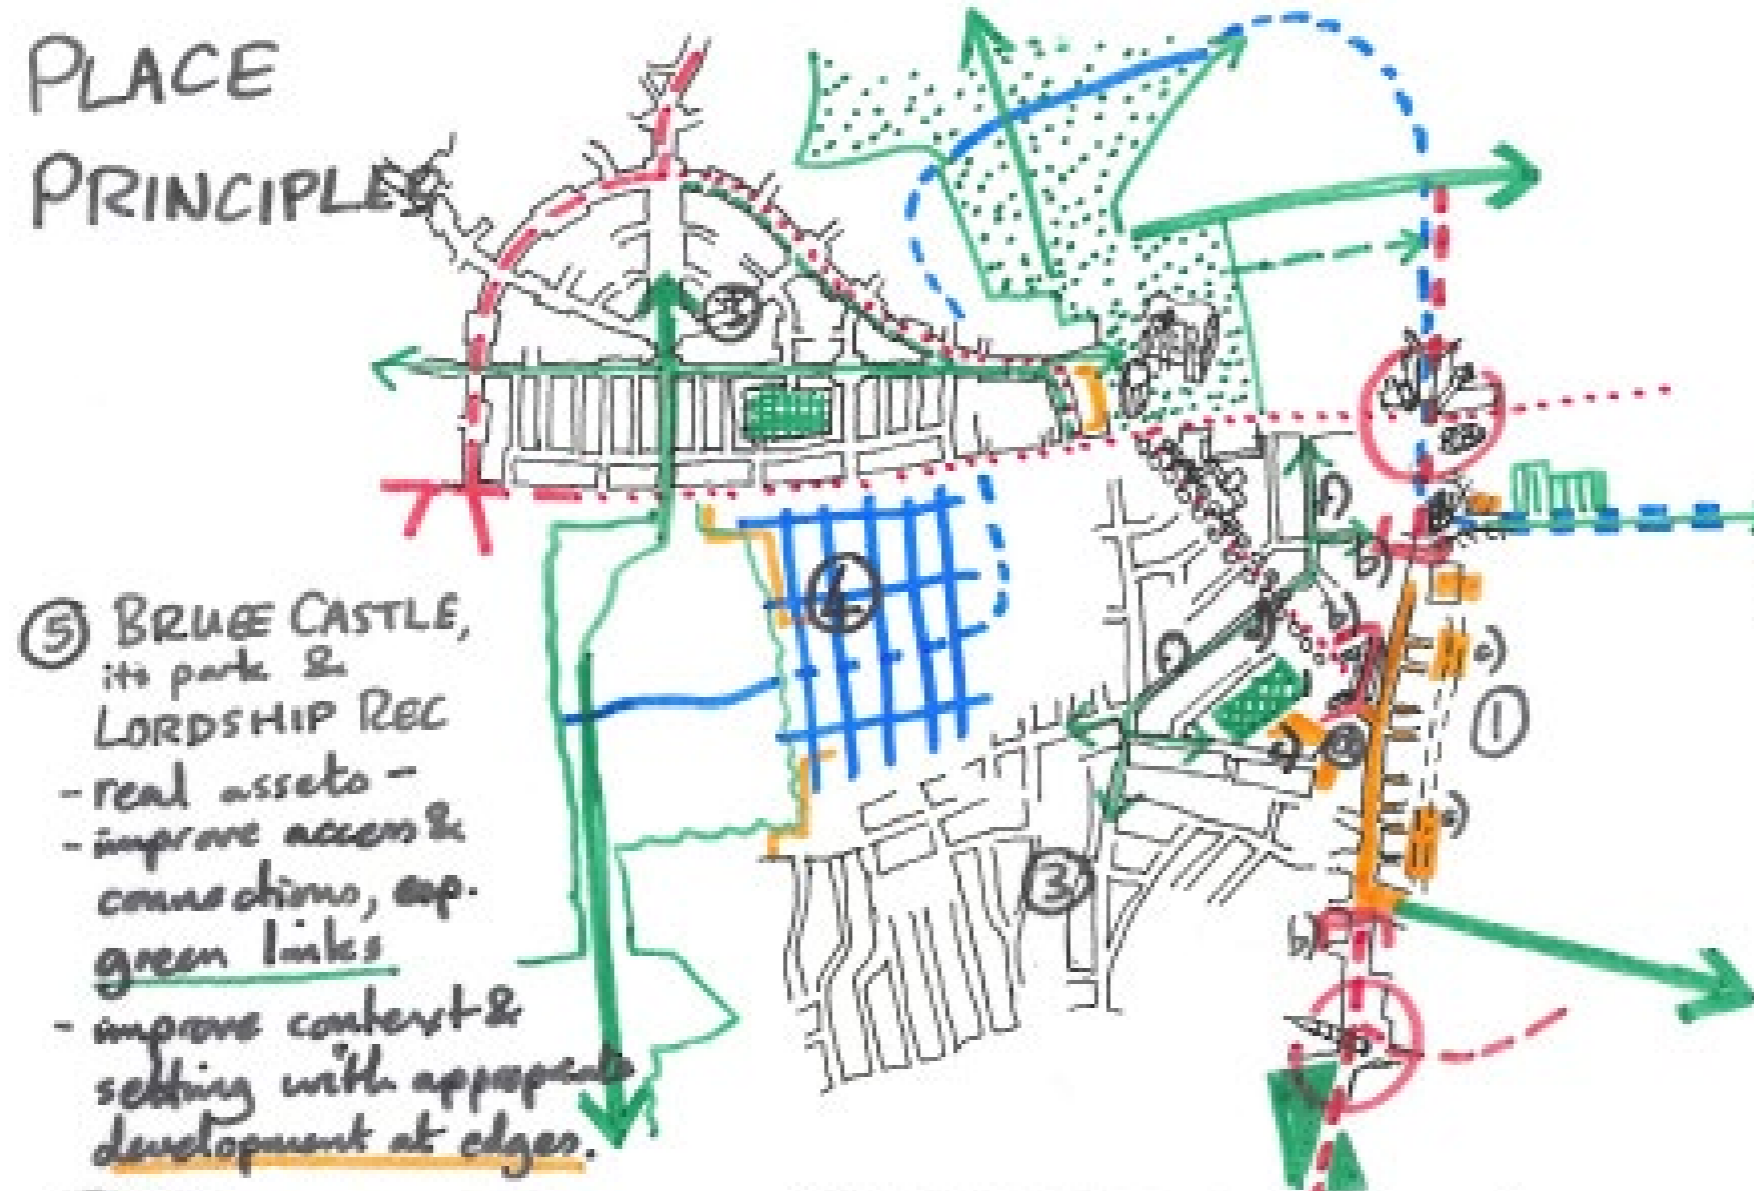 PLACE
PRINCIPLES
⑤ BRUCE CASTLE,
its park &
LORDSHIP REC
- real assets -
- improve access &
connections, esp.
green links
- improve context &
setting with appropriate
development at edges.
③
④
③
①
f)
b)
b)
b)